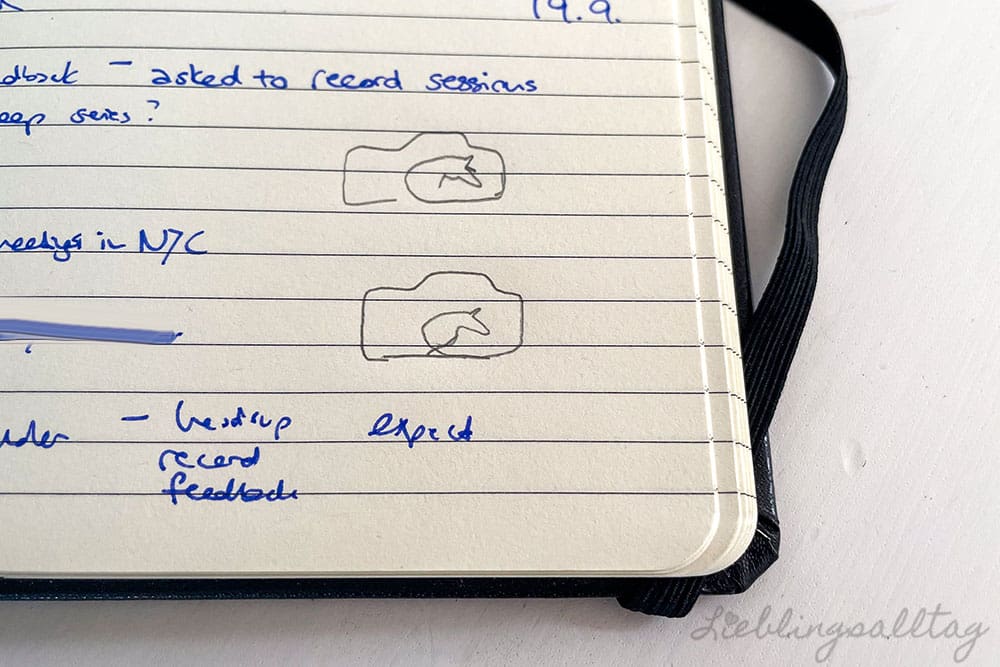 19.9.
dback - asked to record sessions
eep series?
in NYC
- headsup expect
record
feedback
Lieblingsalltag